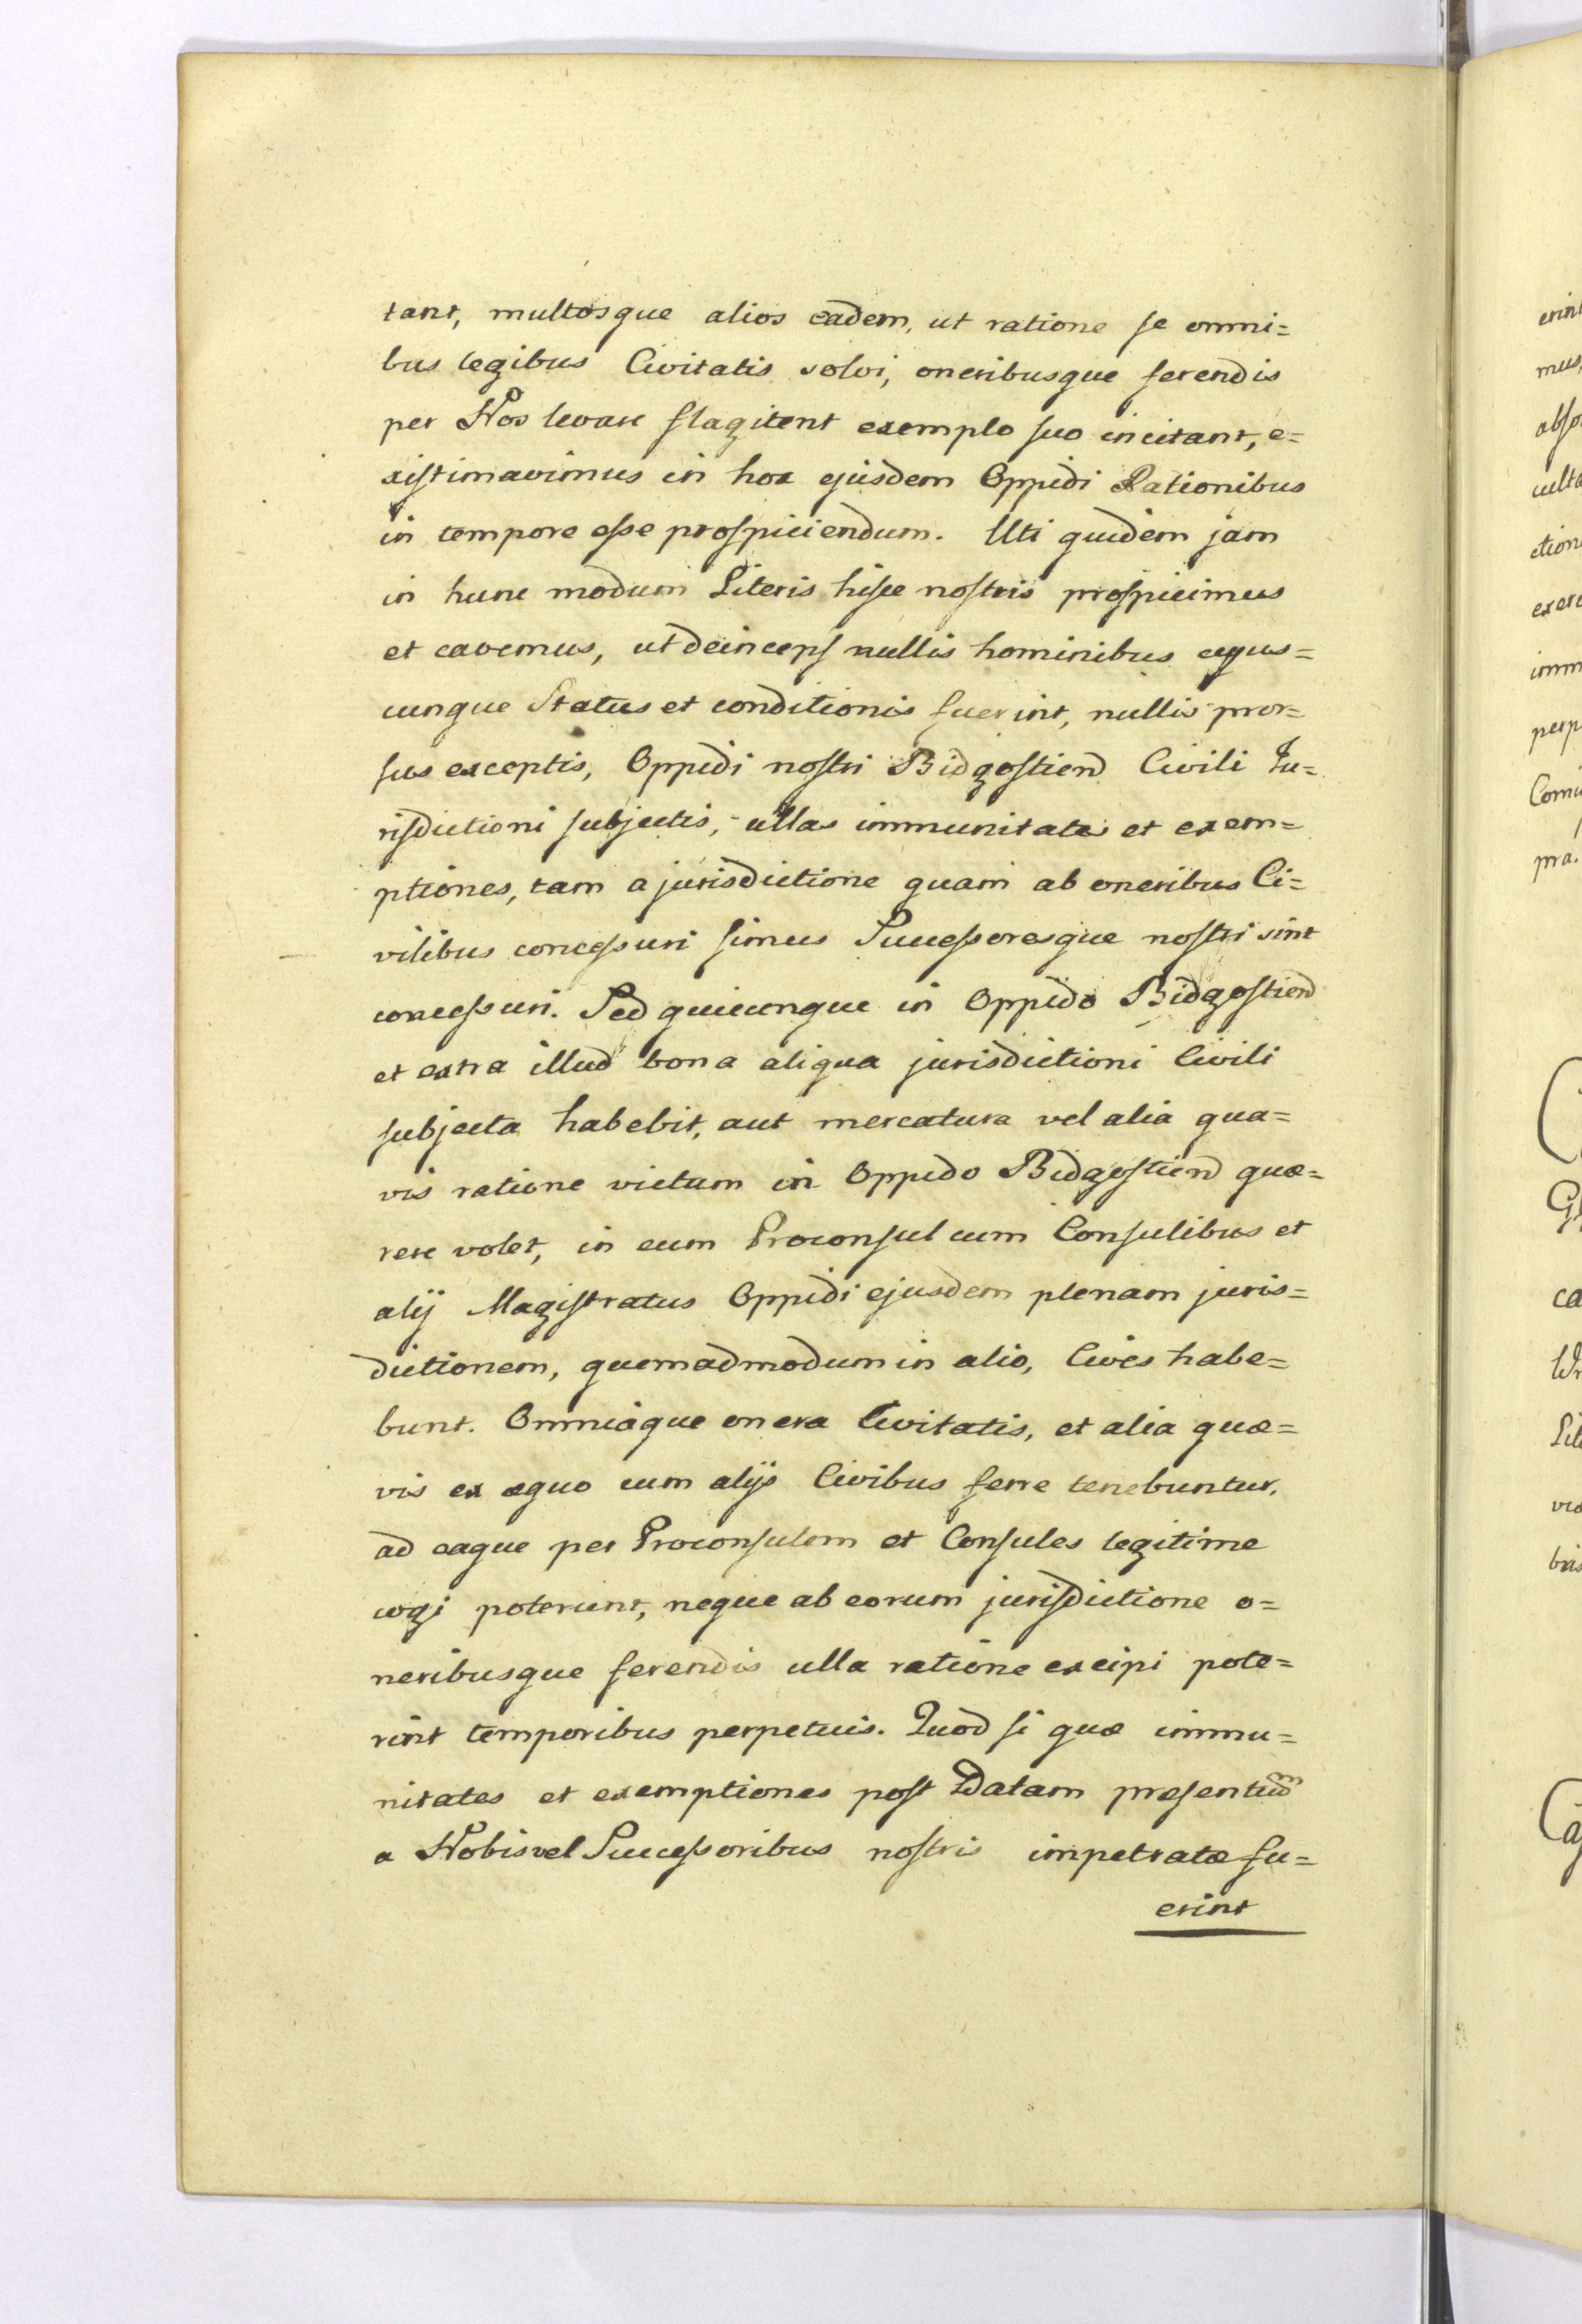 tant, multosque alios eadem, ut ratione se omni=
bus legibus Civitatis solvi, oneribusque ferendis
per Nos levare flagitent exemplo suo incitant, e=
xistimavimus in hox ejusdem Oppidi Rationibus
in tempore esse prospiciendum. Uti quidem jam
in hunc modum Literis hisce nostris prospicimus
et cavemus, ut deinceps nullis hominibus cujus=
cunque Status et conditionis fuerint, nullis pror=
sus exceptis, Oppidi nostri Bidgostien Civili Ju=
risdictioni subjectis, ullas immunitates et exem=
ptiones, tam a jurisdictione quam ab oneribus Ci=
vilibus concessuri simus Successoresque nostri sint
concessuri. Sed quicunque in Oppido Bidgostien
et extra illud bona aliqua jurisdictioni Civili
subjecta habebit, aut mercatura vel alia qua=
vis ratione victum in Oppido Bidgostien quæ=
rere volet, in eum Proconsul cum Consulibus et
alij Magistratus Oppidi ejusdem plenam juris=
dictionem, quemadmodum in alio, Cives habe=
bunt. Omniaque onera Civitatis, et alia quæ=
vis ex æquo cum alijs Civibus ferre tenebuntur,
ad eaque per Proconsulem et Consules legitime
cogi poterunt, neque ab eorum jurisdictione o=
neribusque ferendis ulla ratione excipi pote=
rint temporibus perpetuis. Quod si quæ immu=
nitates et exemptiones post Datam præsentium
a Nobis vel Successoribus nostris impetratæ fu=
erint